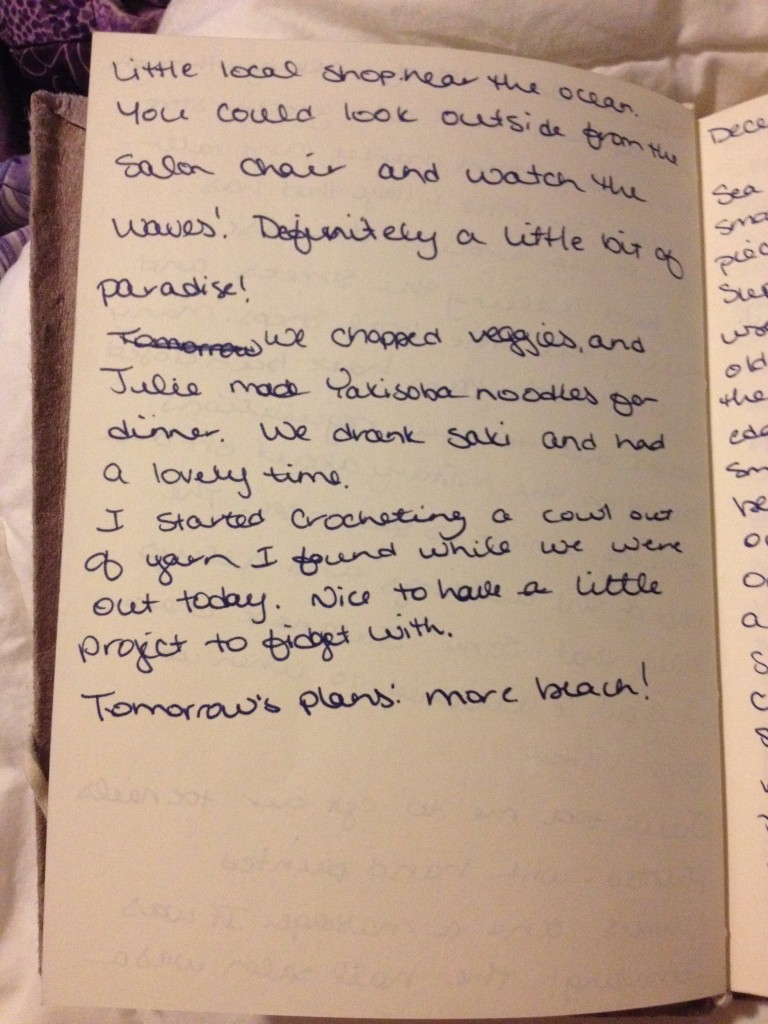 Little local shop near the ocean.
You could look outside from the
salon chair and watch the
waves! Definitely a little bit of
paradise!
Tomorrow We chopped veggies, and
Julie made Yakisoba noodles for
dinner. We drank saki and had
a lovely time.
I started crocheting a cowl out
of yarn I found while we were
out today. Nice to have a little
project to fidget with.
Tomorrow's plans: more beach!
Dece
Sea
sma
piec
old
the
edg
sm
be